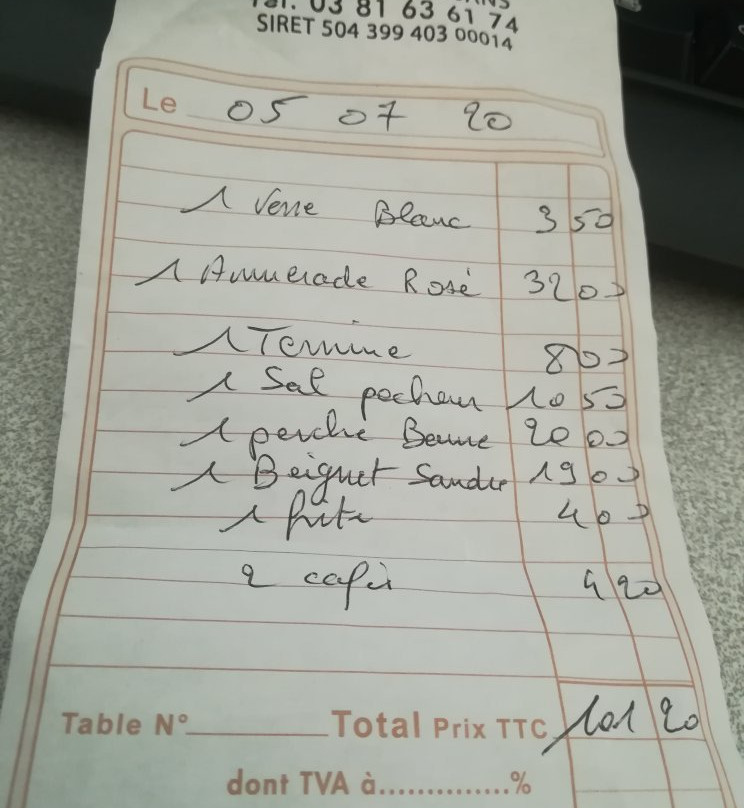 Tél. 03 81 63 61 74
SIRET 504 399 403 00014
Le 05 07 20
1 Verre Blanc 3 50
1 Ammerade Rosé 32 00
1 Terrine 8 00
1 Sal pecheur 10 50
1 perche Beurre 20 00
1 Beignet Sandre 19 00
1 frite 4 00
2 cafés 4 20
Table N° Total Prix TTC 101 20
dont TVA à..............%